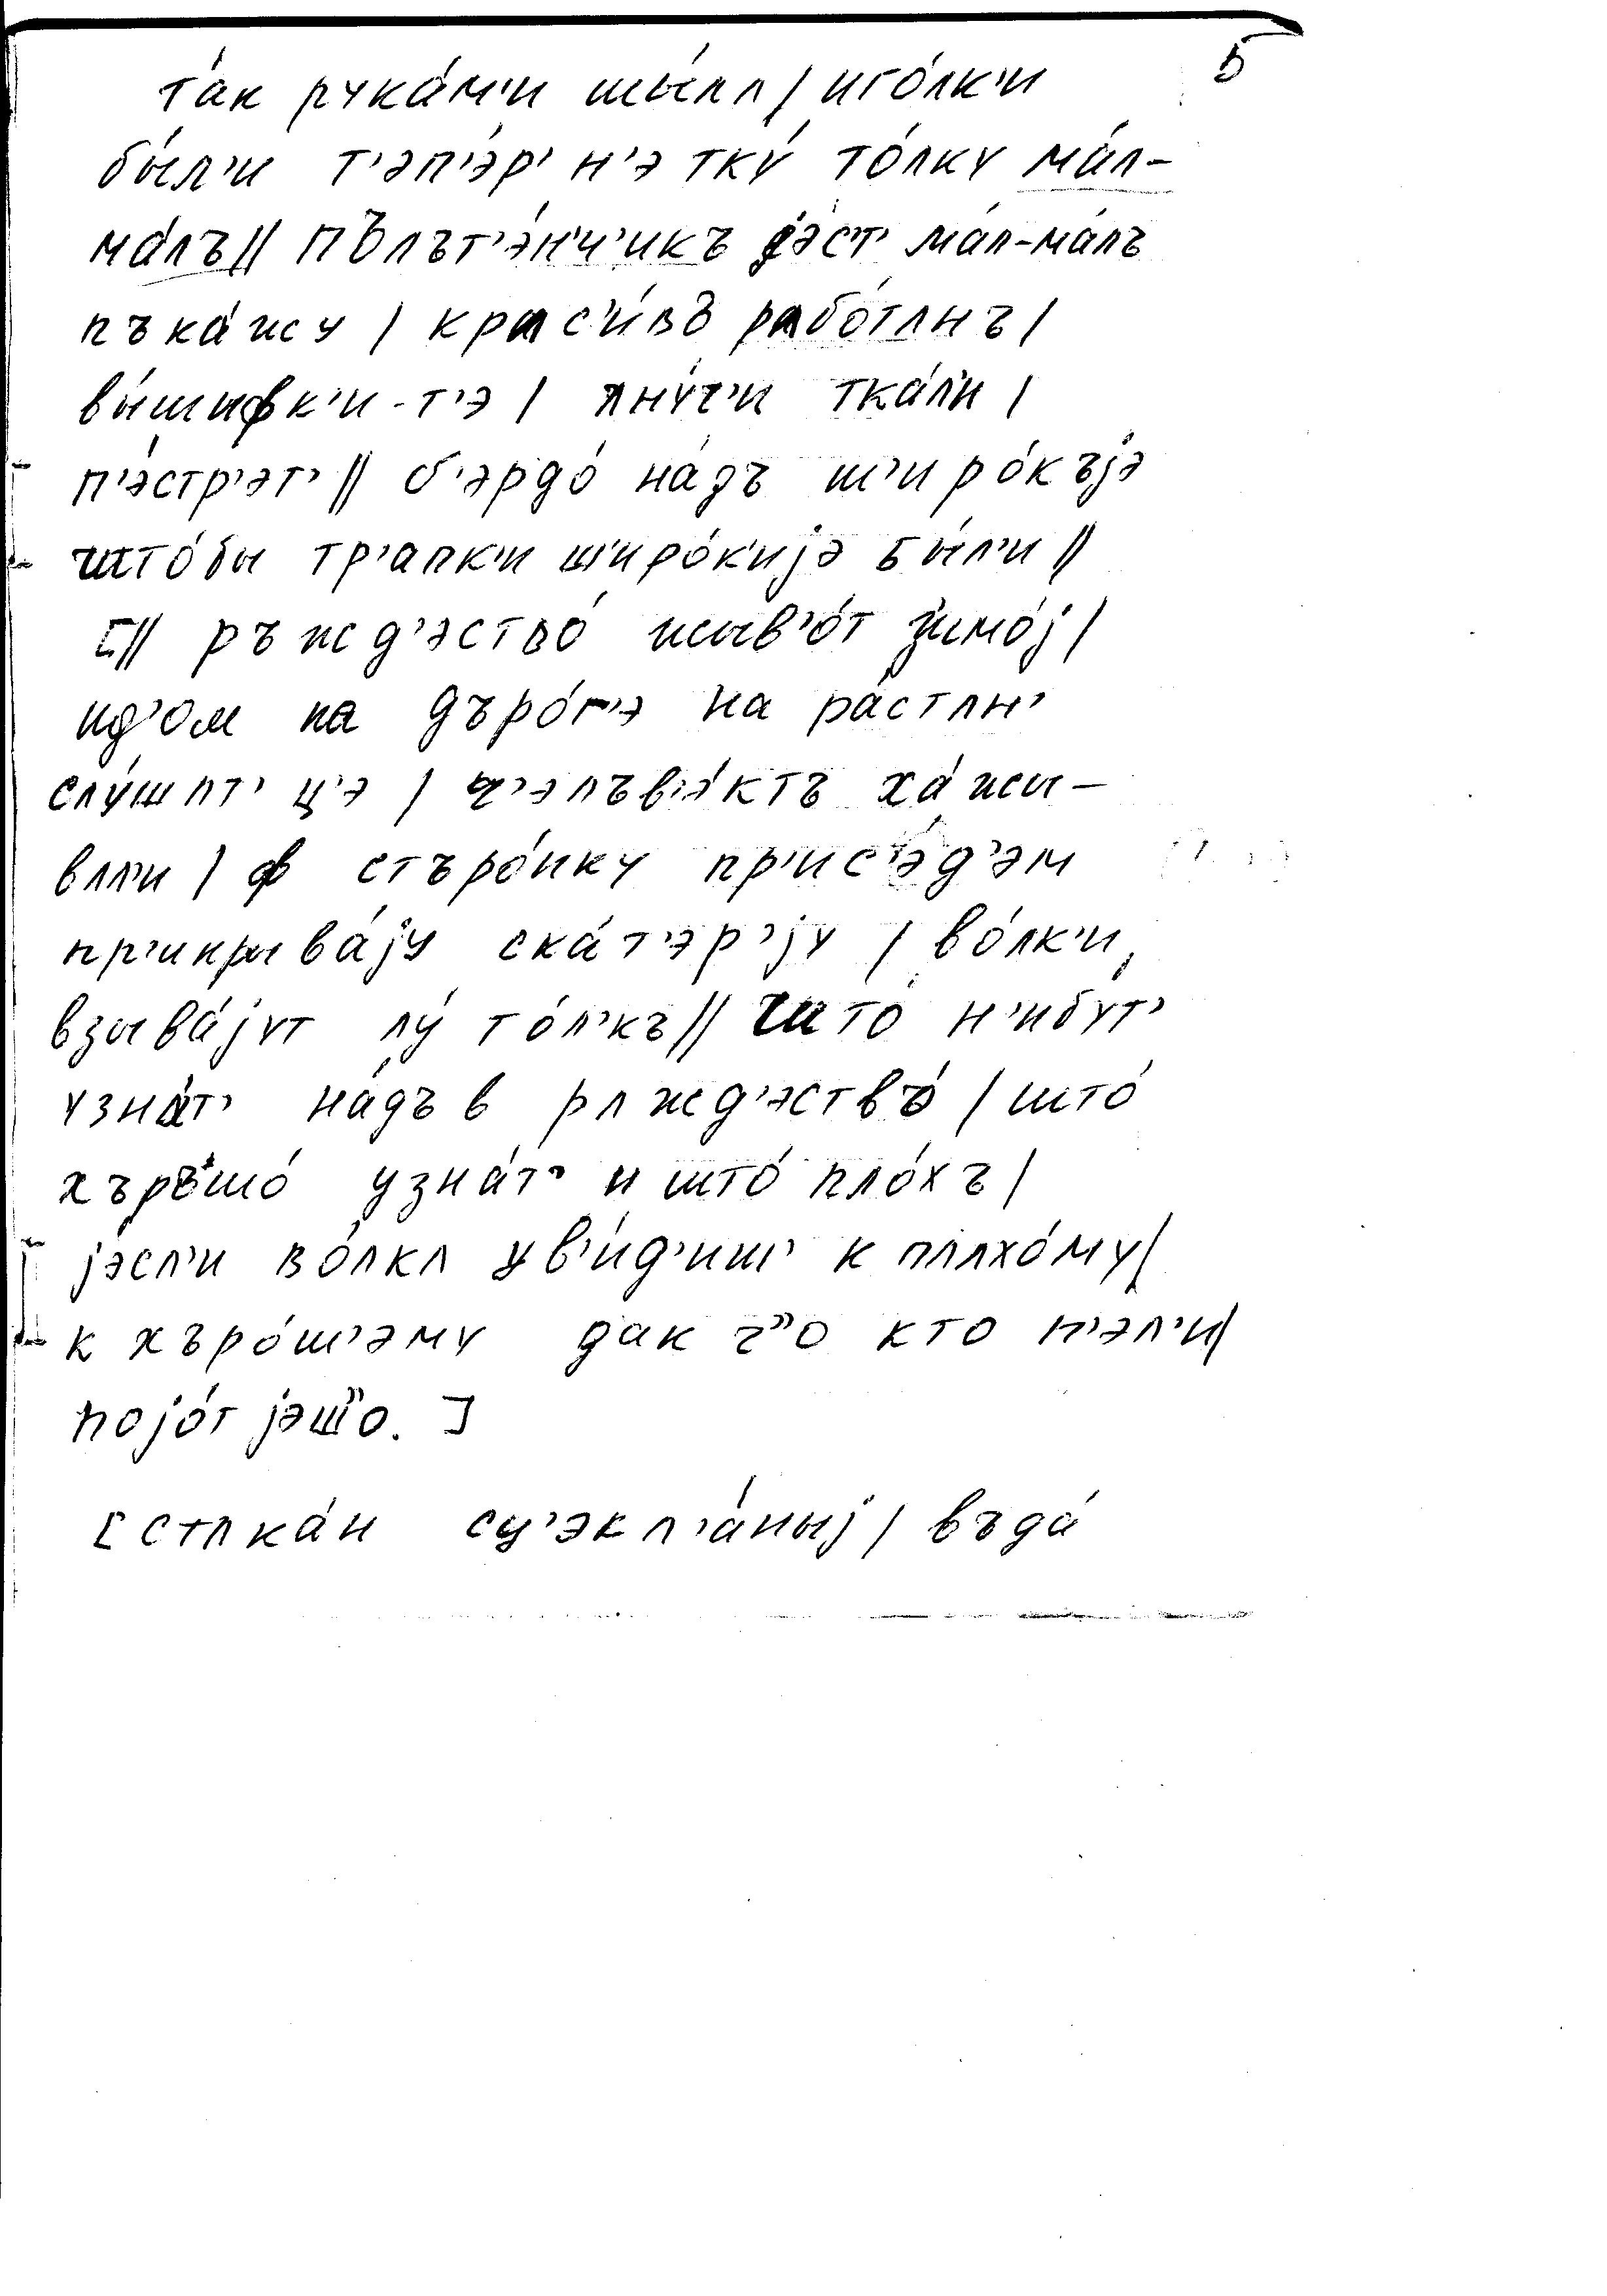 5
та́к рука́м'и шы́лʌ / иго́лк'и
бы́л'и т'эп'э́р' н'э тку́ то́лку ма́л-
ма́лъ // пълът'э́н'ч'икъ јэ́с'т' ма́л-ма́лъ
пъка́жу / крʌс'и́въ рʌбо́тʌнъ /
вы́шифк'и-т'э / ʌну́ч'и тка́л'и /
п'э́стр'эт' // б'эрдо́ на́дъ ш'иро́къјэ
што́бы тр'а́пк'и ш'иро́к'ијэ бы́л'и //
[// ръжд'эство́ жыв'о́т з'имо́ј /
ид'ом на дъро́г'э на ра́стʌн'
слу́шʌт'ц'э / ч'элъв'э́ктъ ха́жы-
вʌл'и / ф сторо́нку пр'ис'э́д'эм
пр'икрыва́ју ска́т'эр'ју / во́лк'и,
взыва́јут лу́ то́л'къ // што́ н'ибут'
узна́т' на́дъ в рʌжд'эствъ́ / што́
хъръшо́ узна́т' и што́ пло́хъ /
јэ́сл'и во́лкʌ ув'и́д'иш' к плʌхо́му /
к хъро́ш'эму дак ч"о кто п'эл'и /
појо́т јэш"о. ]
[ стʌка́н сц'экл'а́ныј / въда́